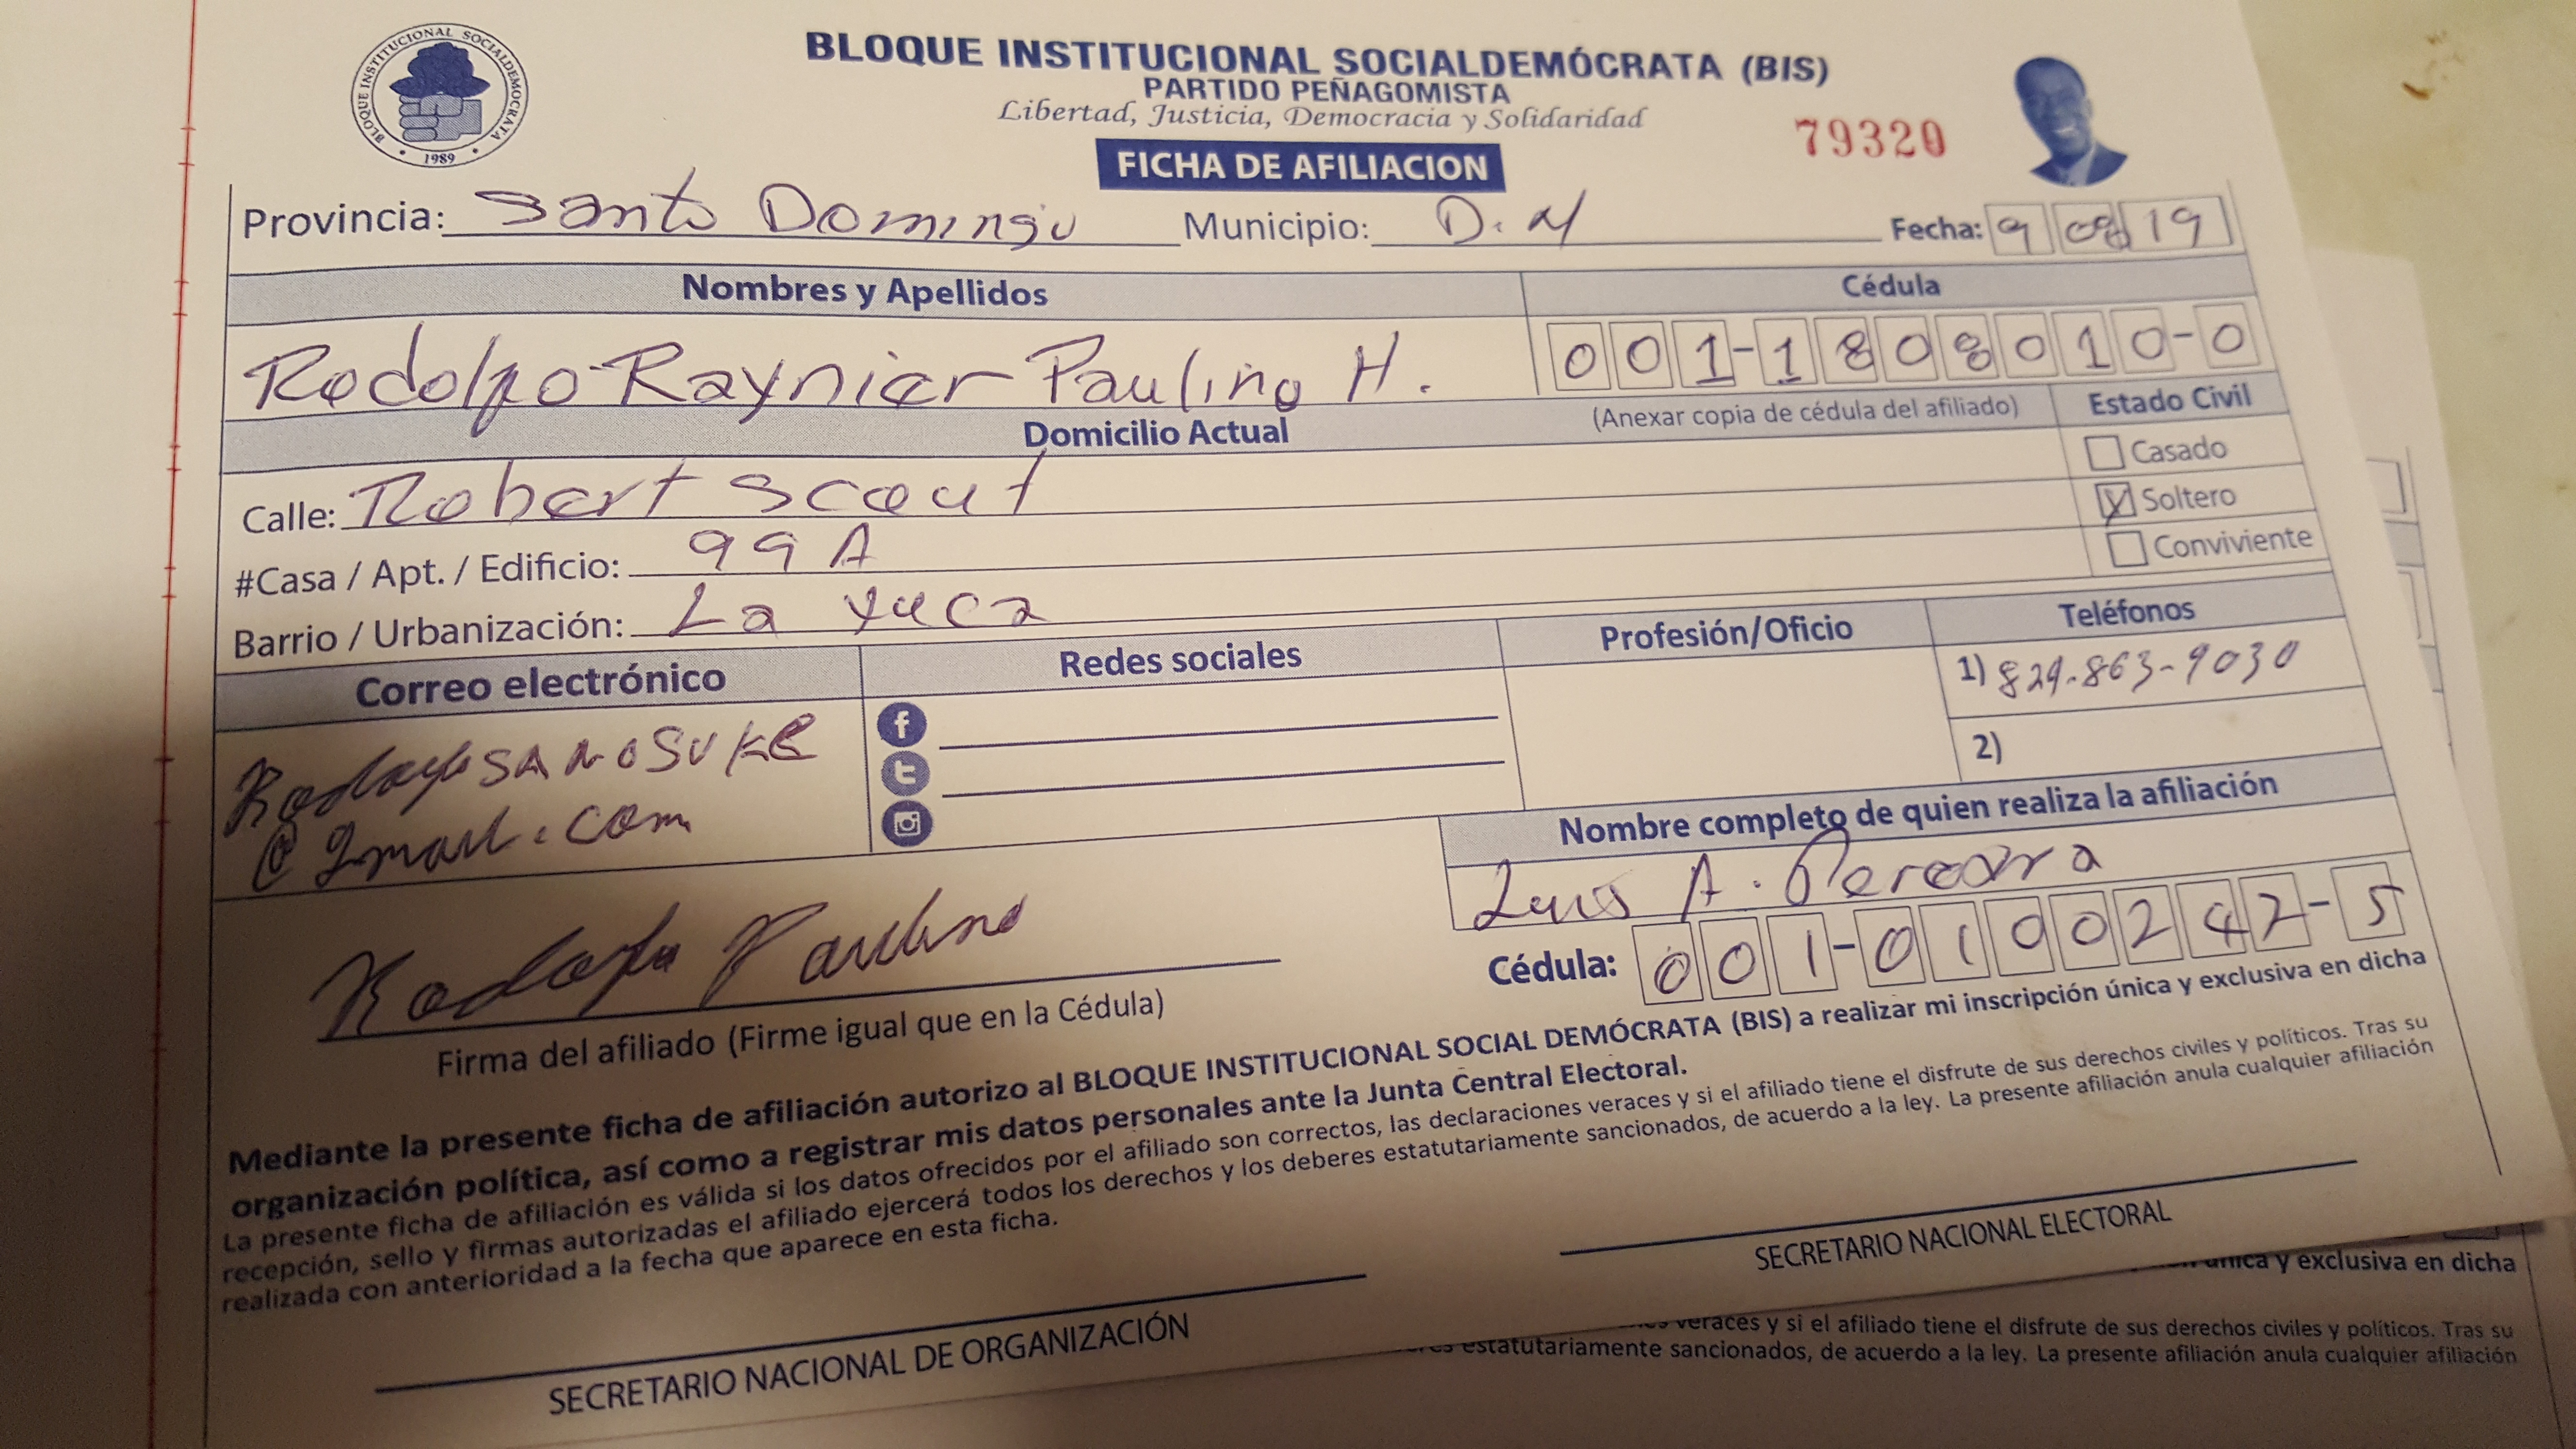 BLOQUE INSTITUCIONAL SOCIALDEMOCRATA
1989
BLOQUE INSTITUCIONAL SOCIALDEMÓCRATA (BIS)
PARTIDO PEÑAGOMISTA
Libertad, Justicia, Democracia y Solidaridad
79320
FICHA DE AFILIACION
Provincia: Santo Domingo Municipio: D. N Fecha: 9 08 19
Nombres y Apellidos Cédula
Rodolfo Raynier Paulino H. 001-1808010-0
(Anexar copia de cédula del afiliado) Estado Civil
Domicilio Actual
Casado
Calle: Robert Scout
Soltero
#Casa / Apt. / Edificio: 99 A
Conviviente
Barrio / Urbanización: La Yuca
Correo electrónico Redes sociales Profesión/Oficio Teléfonos
1) 829-863-9030
RodolfoSANOSUKE
@gmail.com
2)
Nombre completo de quien realiza la afiliación
Luis A.
Cédula: 001-0100242-5
Rodolfo Paulino
Firma del afiliado (Firme igual que en la Cédula)
Mediante la presente ficha de afiliación autorizo al BLOQUE INSTITUCIONAL SOCIAL DEMÓCRATA (BIS) a realizar mi inscripción única y exclusiva en dicha
organización política, así como a registrar mis datos personales ante la Junta Central Electoral.
La presente ficha de afiliación es válida si los datos ofrecidos por el afiliado son correctos, las declaraciones veraces y si el afiliado tiene el disfrute de sus derechos civiles y políticos. Tras su
recepción, sello y firmas autorizadas el afiliado ejercerá todos los derechos y los deberes estatutariamente sancionados, de acuerdo a la ley. La presente afiliación anula cualquier afiliación
realizada con anterioridad a la fecha que aparece en esta ficha.
SECRETARIO NACIONAL DE ORGANIZACIÓN
SECRETARIO NACIONAL ELECTORAL
única y exclusiva en dicha
veraces y si el afiliado tiene el disfrute de sus derechos civiles y políticos. Tras su
estatutariamente sancionados, de acuerdo a la ley. La presente afiliación anula cualquier afiliación